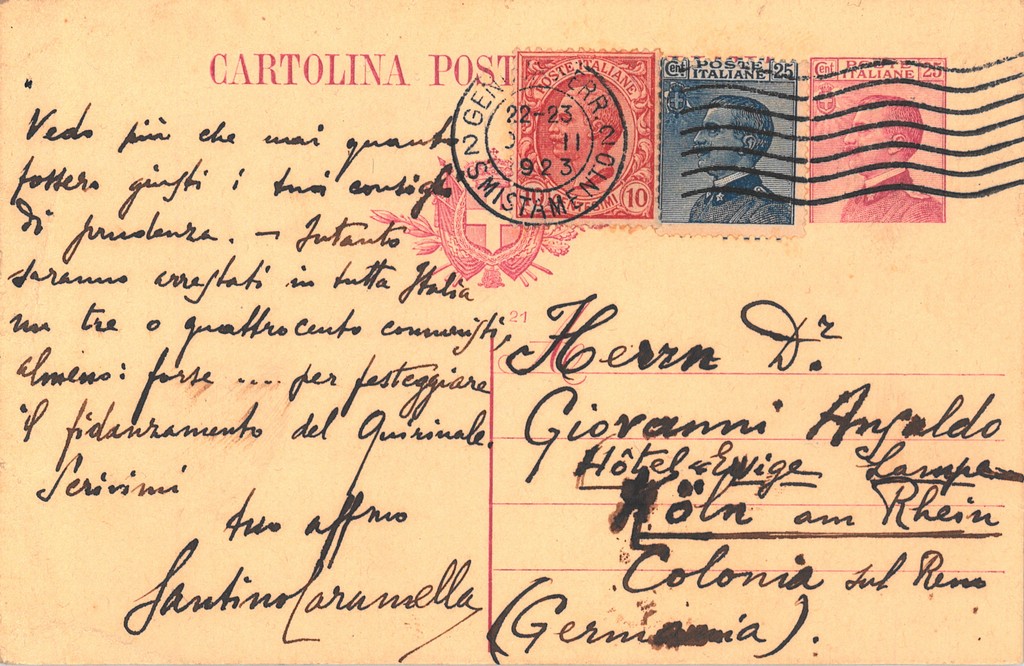 CARTOLINA POST
POSTE ITALIANE
10
Cent POSTE ITALIANE 25
Cent POSTE ITALIANE 25
GEN FERR.
22-23
II
923
2 2
SMISTAMENTO
Vedo più che mai quanto
fossero giusti i tuoi consigli
di prudenza. – Intanto
saranno arrestati in tutta Italia
un tre o quattrocento communisti,
almeno: forse .... per festeggiare
il fidanzamento del Quirinale.
Scrivimi
tuo affmo
Santino Caramella
21
Herrn Dr.
Giovanni Ansaldo
Hôtel "Ewige Lampe"
Köln am Rhein
Colonia sul Reno
(Germania).